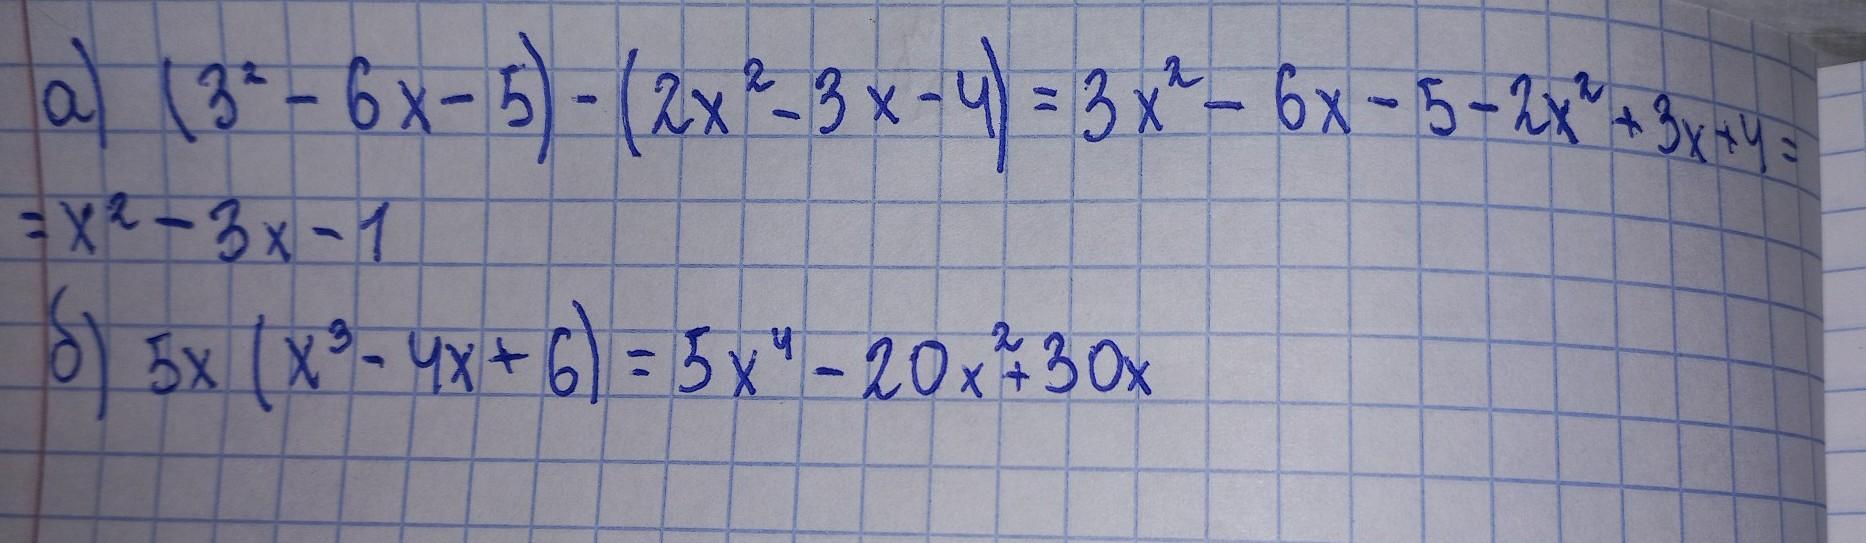 а) (3² - 6x - 5) - (2x² - 3x - 4) = 3x² - 6x - 5 - 2x² + 3x + 4 =
= x² - 3x - 1
б) 5x (x³ - 4x + 6) = 5x⁴ - 20x² + 30x